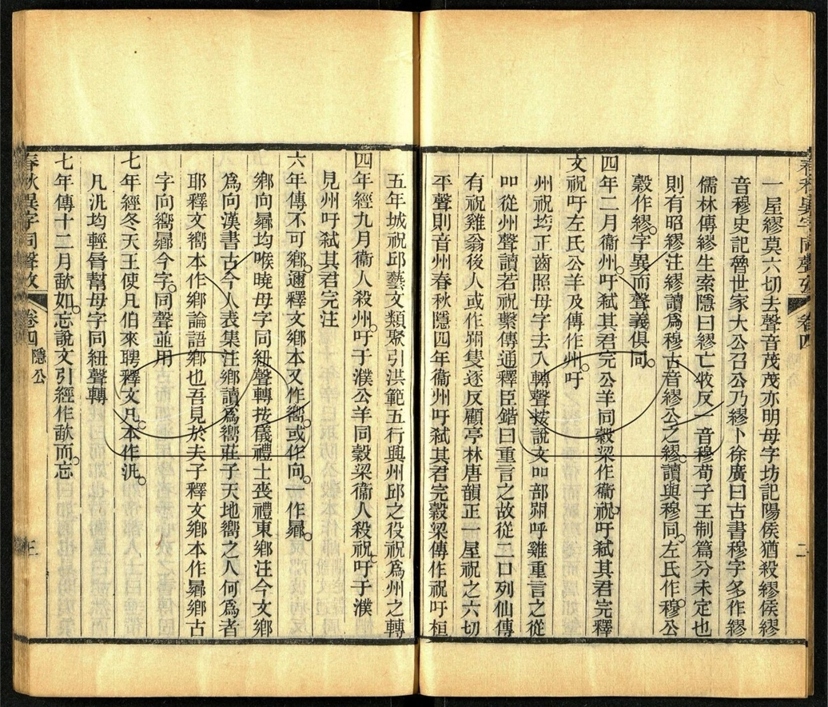 一屋繆莫六切去聲音茂茂亦明母字坊記陽侯猶殺繆侯繆
音穆史記魯世家大公召公乃繆卜徐廣曰古書穆字多作繆
儒林傳繆生索隱曰繆亡救反一音穆荀子王制篇分未定也
則有昭繆注繆讀爲穆古音繆公之繆讀與穆同左氏作穆公
穀作繆字異而聲義俱同
四年二月衞州吁弑其君完公羊同穀梁作衞祝吁弑其君完釋
文祝吁左氏公羊及傳作州吁
州祝均正齒照母字去入轉聲按說文吅部喌呼雞重言之從
吅從州聲讀若祝繫傳通釋臣鍇曰重言之故從二口列仙傳
有祝雞翁後人或作喌隻逐反顧亭林唐韻正一屋祝之六切
平聲則音州春秋隱四年衞州吁弑其君完穀梁傳作祝吁桓
五年城祝邱藝文類聚引洪範五行興州邱之役祝爲州之轉
四年經九月衞人殺州吁于濮公羊同穀梁衞人殺祝吁于濮
見州吁弑其君完注
六年傳不可鄉邇釋文本又作嚮或作向一作曏
鄉向曏均喉曉母字同紐聲轉按儀禮士喪禮東鄉注今文鄉
爲向漢書古今人表集注鄉讀爲嚮莊子天地嚮之人何爲者
耶釋文嚮本作鄉論語鄉也吾見於夫子釋文鄉本作曏鄉古
字向嚮曏今字同聲並用
七年經冬天王使凡伯來聘釋文凡本作汎
凡汎均輕脣幫母字同紐聲轉
七年傳十二月歃如忘說文引經作歃而忘
春秋異字同聲攷
卷四
隱公
三